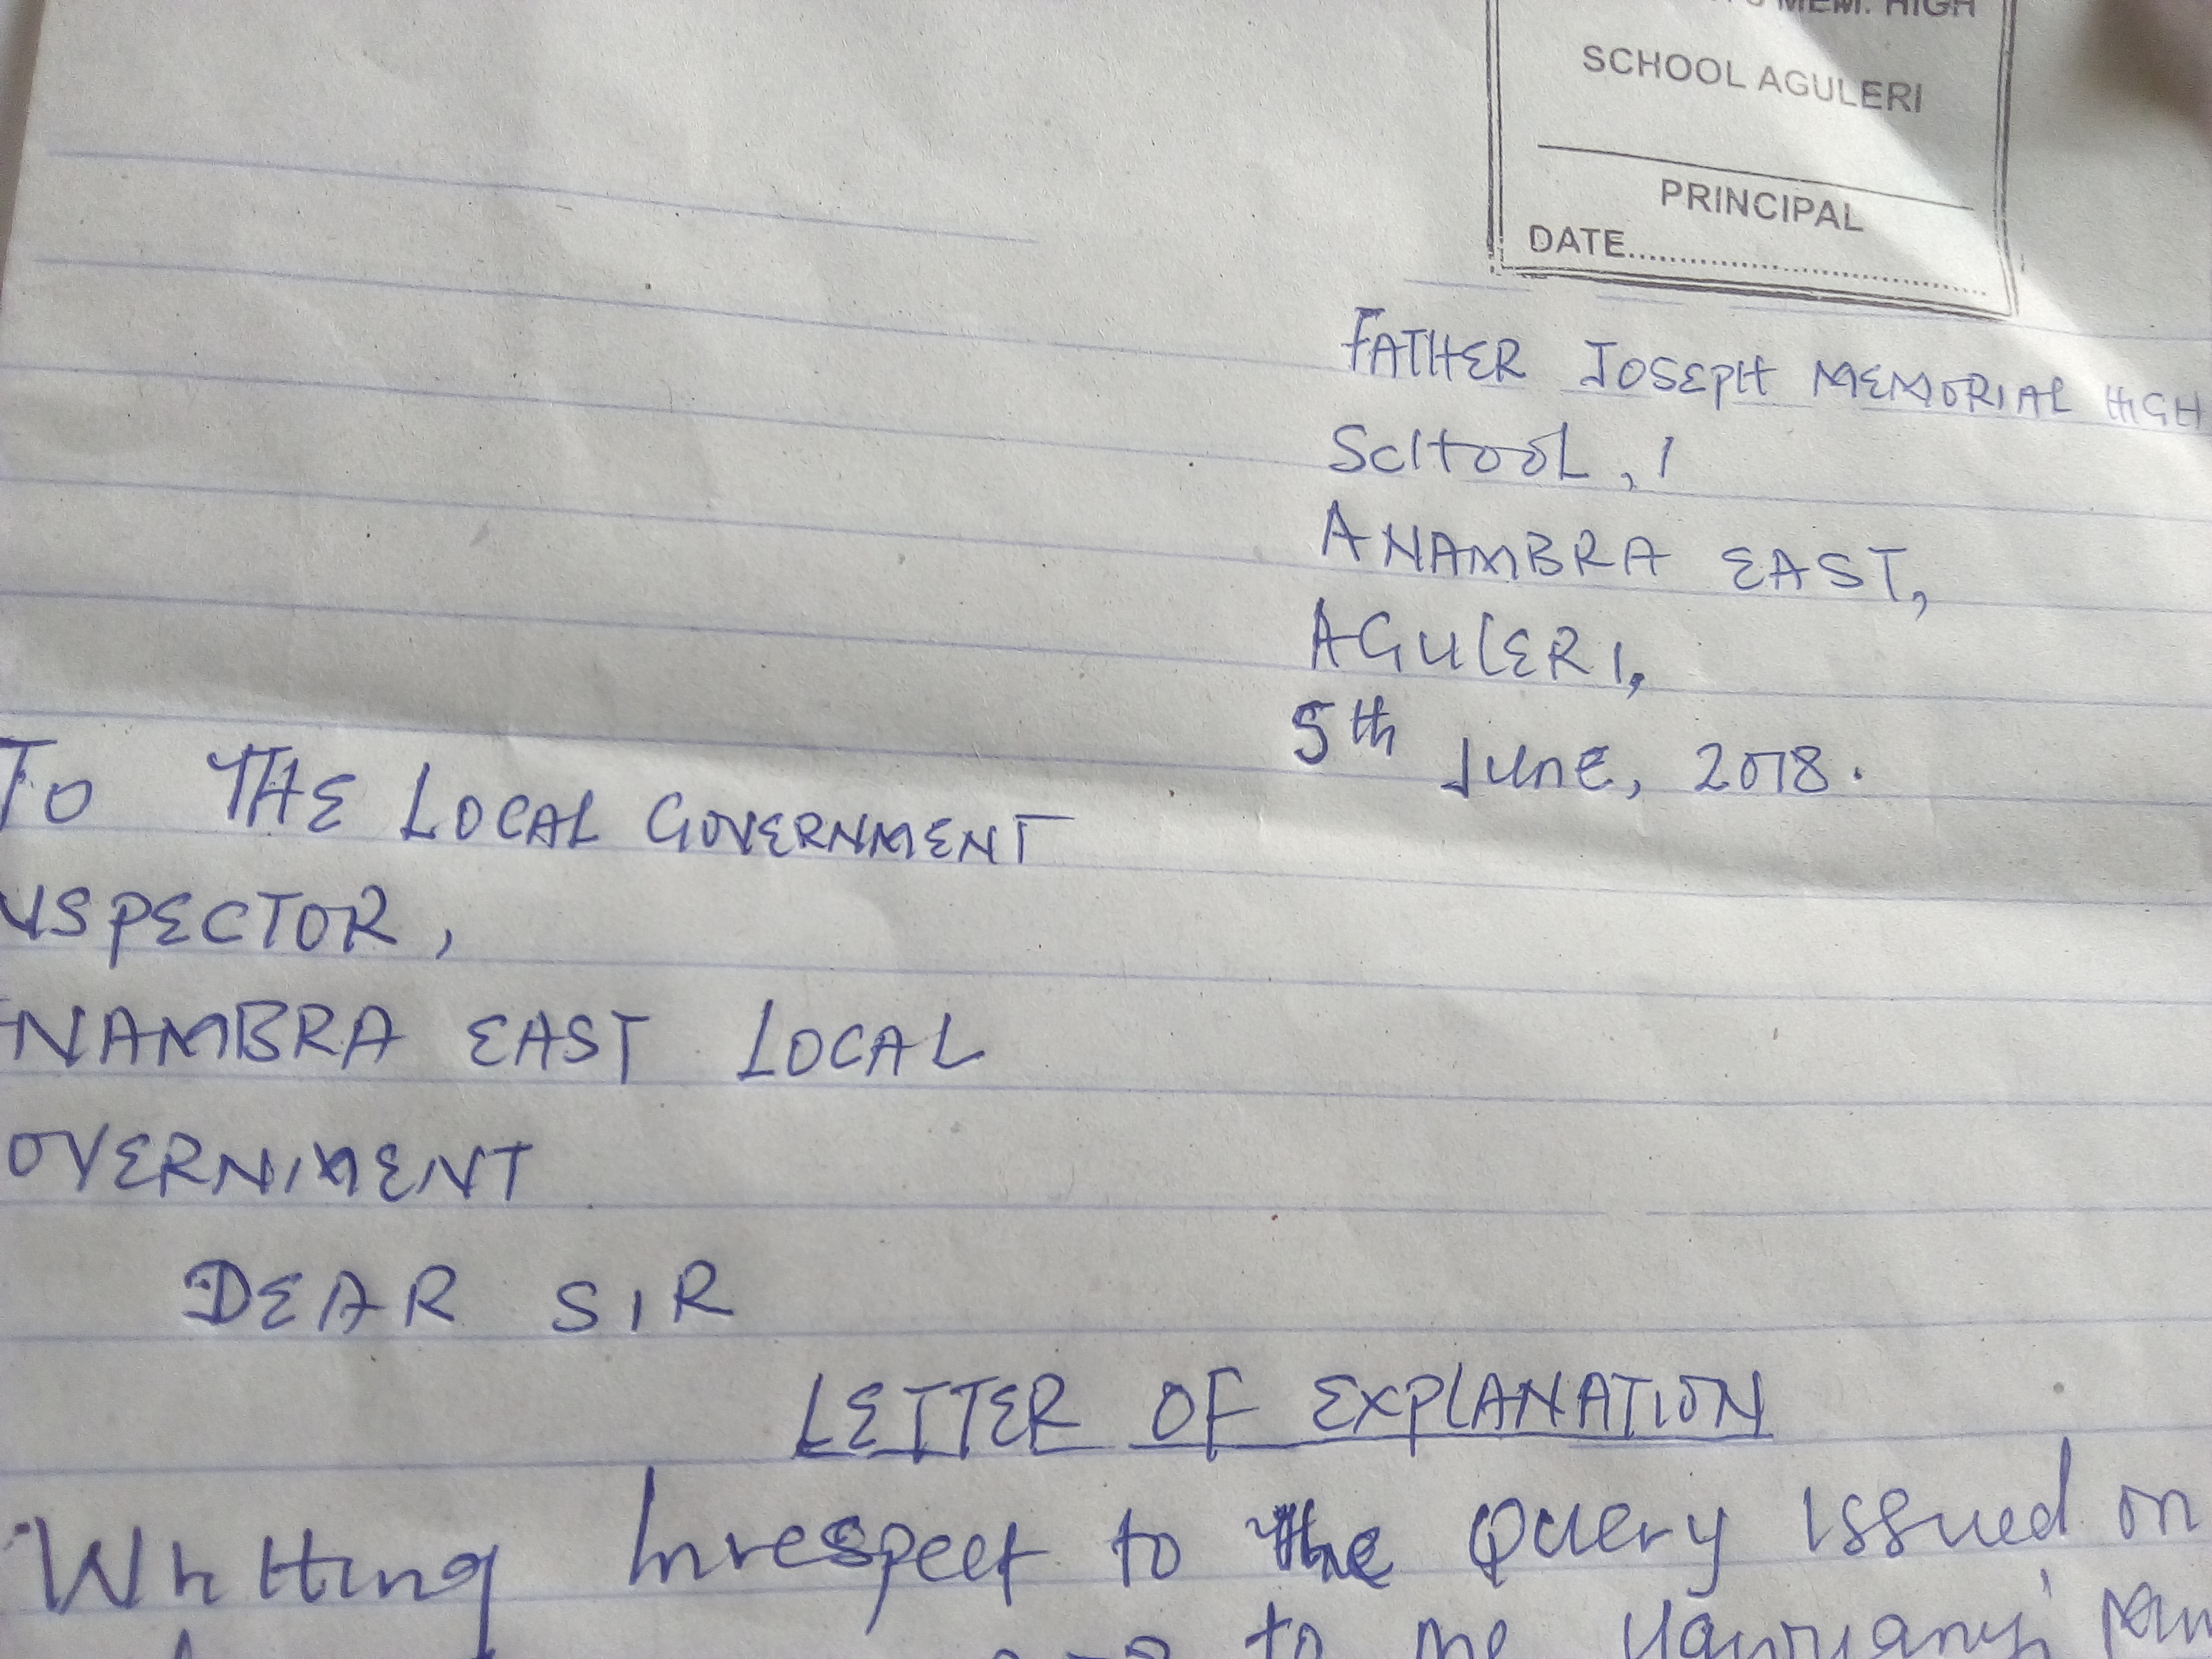 MEM. HIGH
SCHOOL AGULERI
PRINCIPAL
DATE
FATHER JOSEPH MEMORIAL HIGH
SCHOOL, 1
ANAMBRA EAST,
AGULERI,
5th June, 2018.
TO THE LOCAL GOVERNMENT
NSPECTOR,
NAMBRA EAST LOCAL
OVERNMENT
DEAR SIR
LETTER OF EXPLANATION
Writting Inrespect to the Query issued on
to me